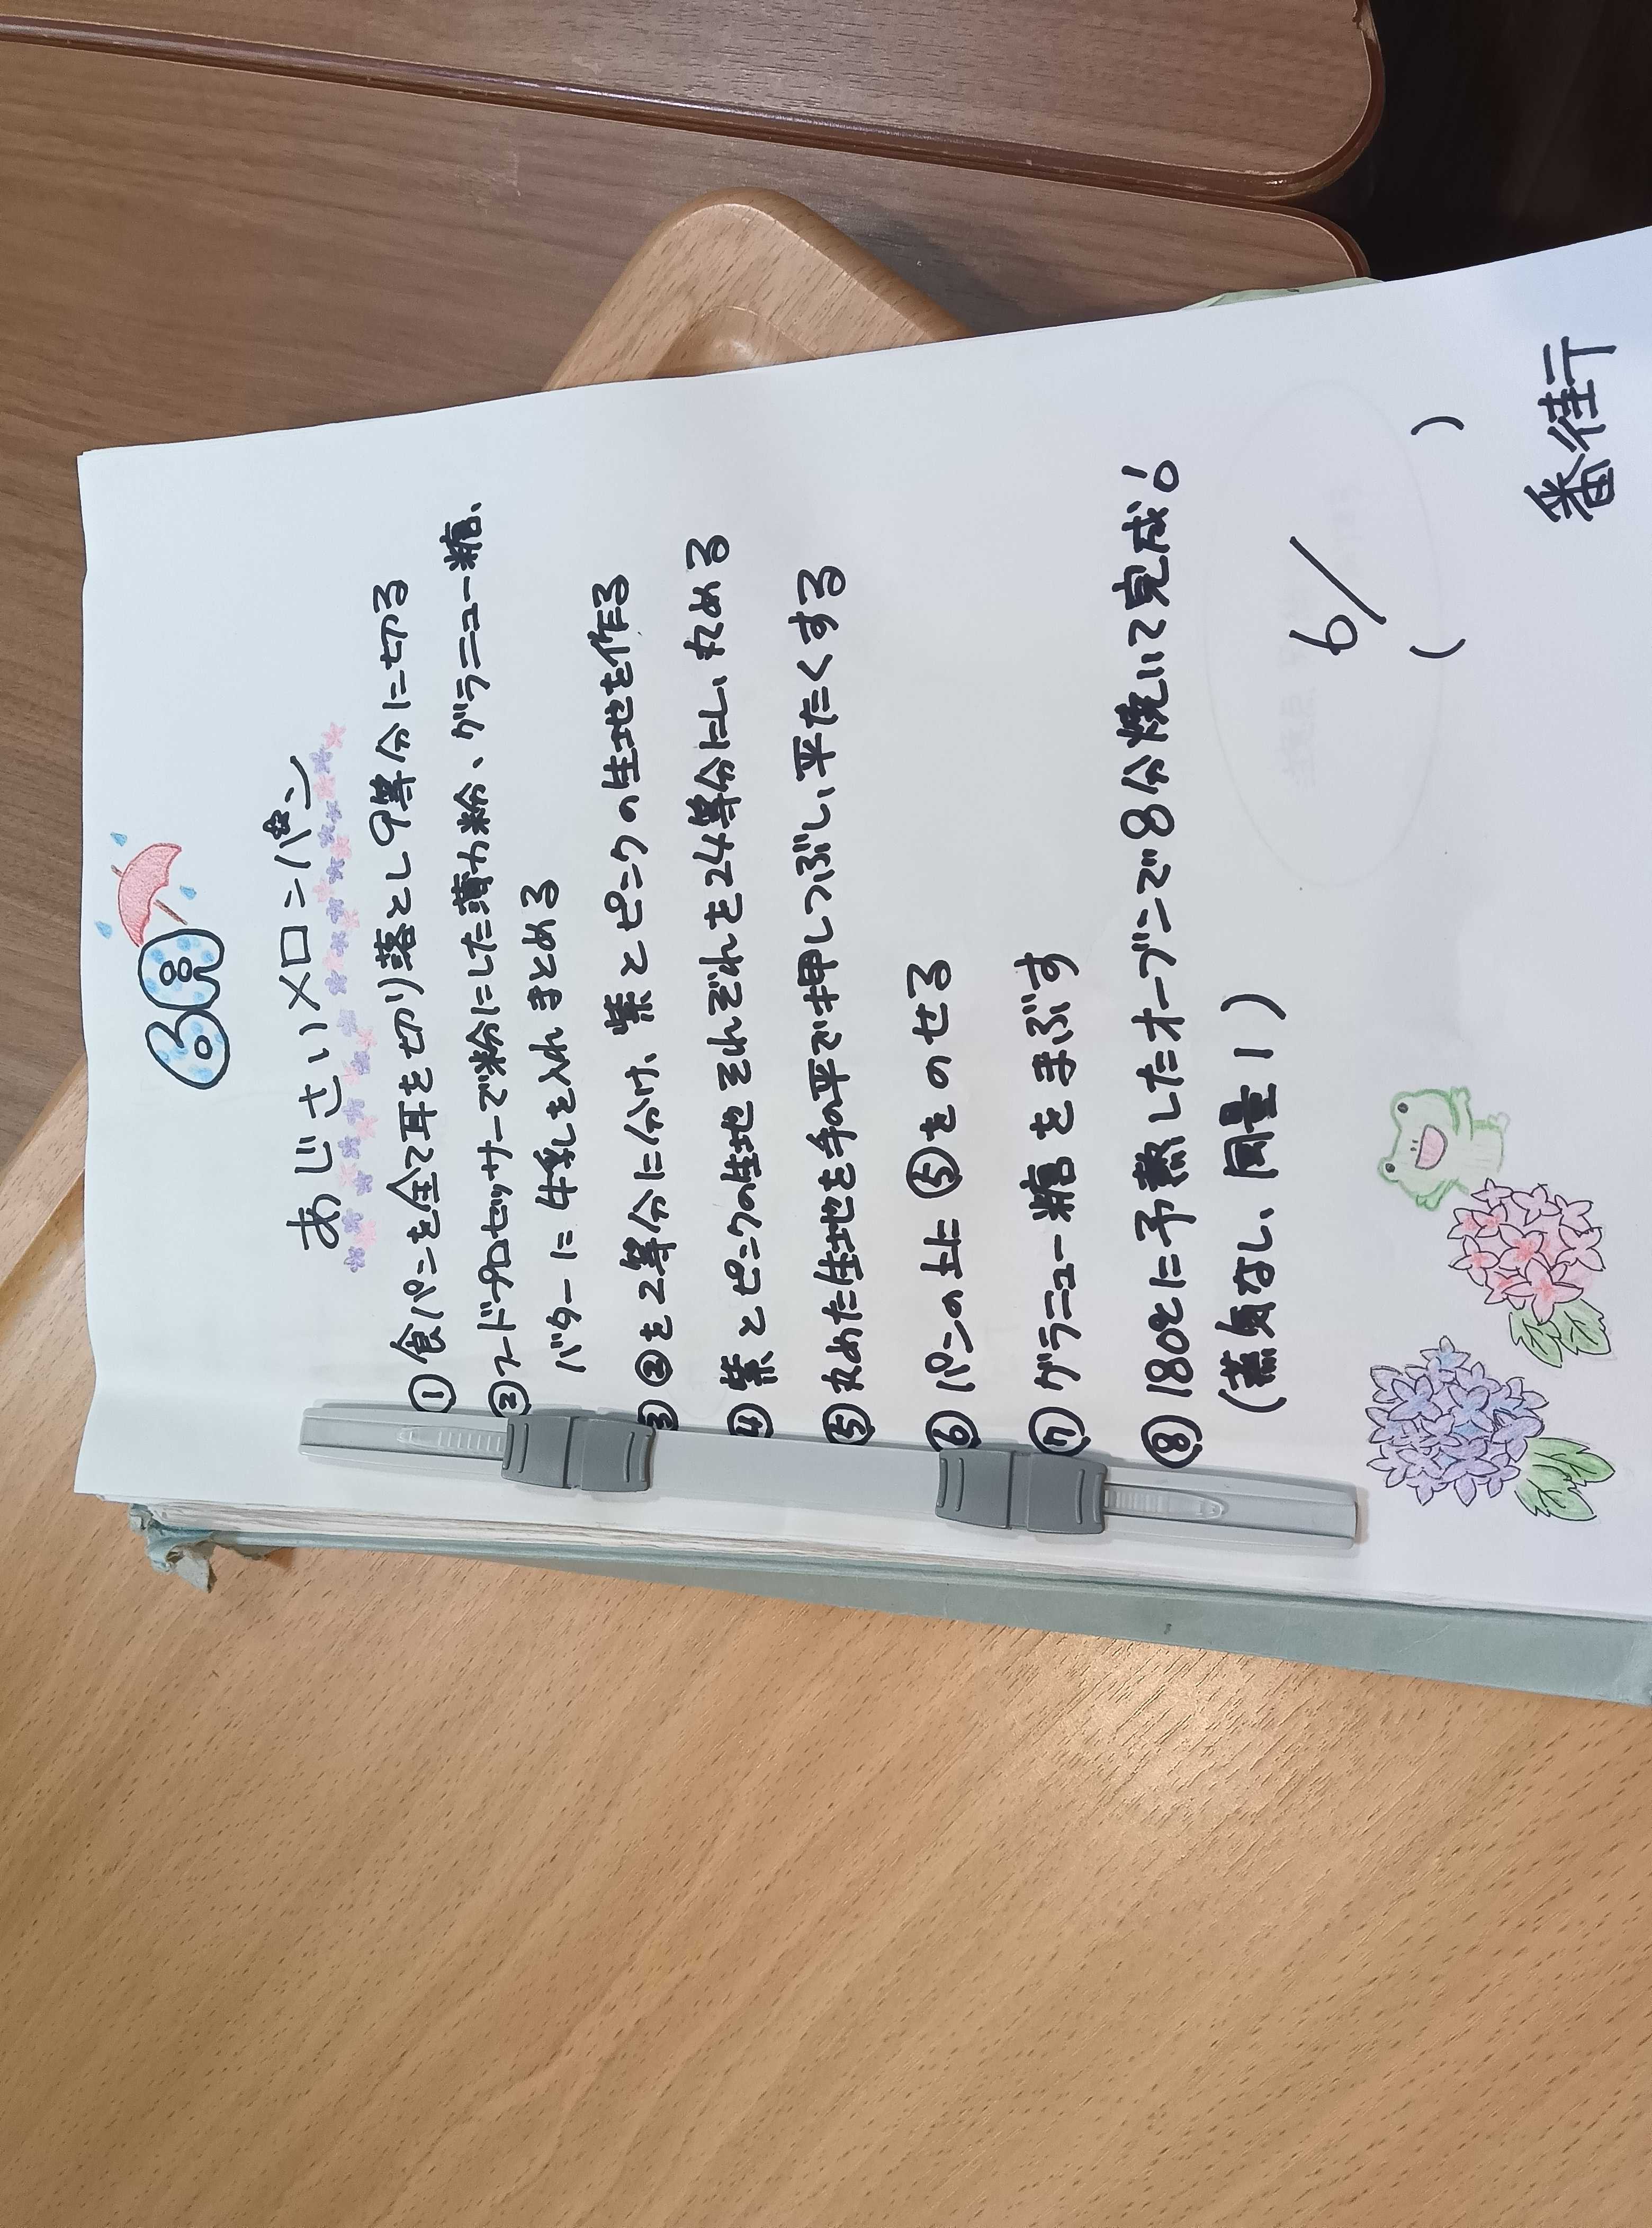 6月
あじさいメロンパン
① 食パンを全て耳を切り落とし9等分に切る
②フードプロセッサーで粉にした薄力粉、グラニュー糖、
バターに牛乳を入れまとめる
③ ②を2等分に分け、紫とピンクの生地を作る
④ 紫とピンクの生地それぞれを24等分にし、丸める
⑤ 丸めた生地を手の平で押しつぶし、平たくする
⑥ パンの上に⑤をのせる
⑦ グラニュー糖をまぶす
⑧ 180℃に予熱したオーブンで8分焼いて完成!
(蒸気なし、風量1)
6/
( )
番街